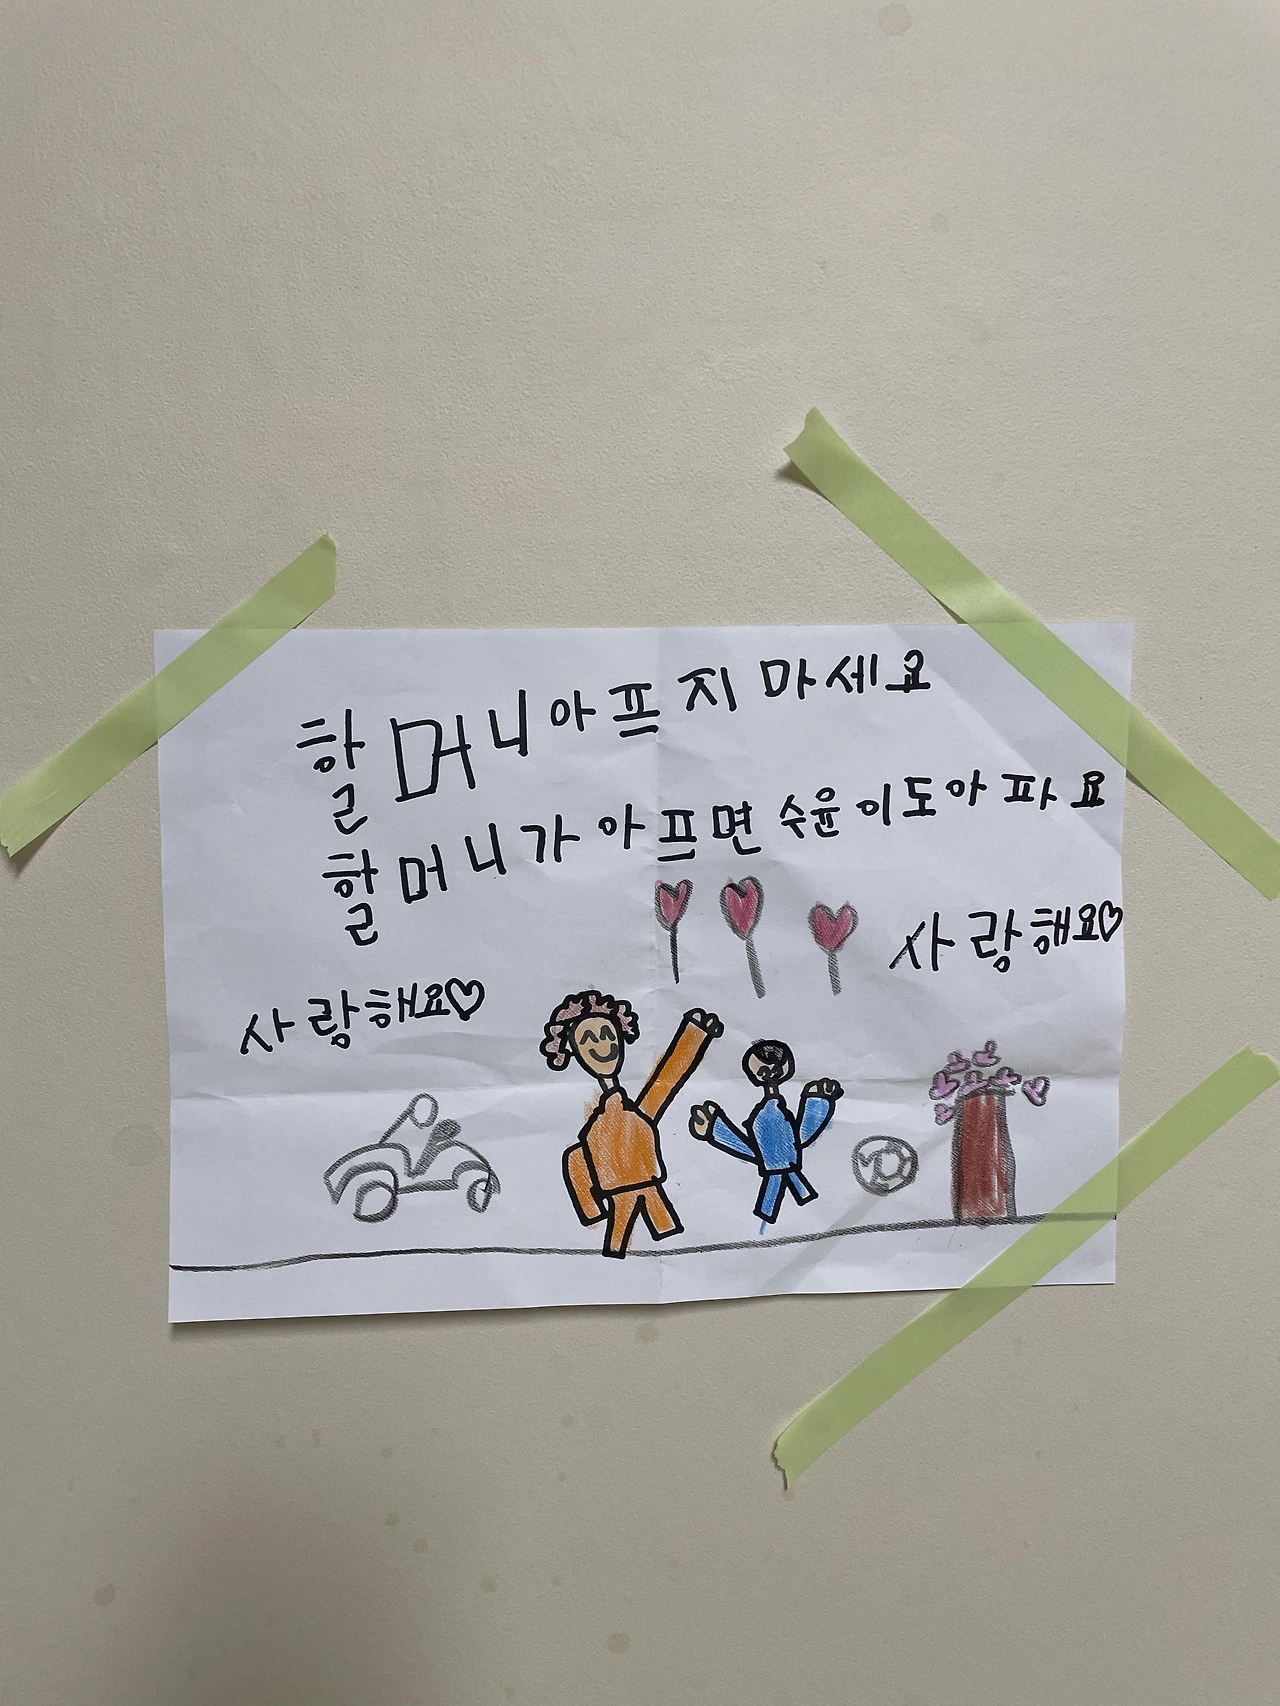 할머니아프지 마세요
할머니가 아프면 수윤이도아파요
사랑해요♡
사랑해요♡